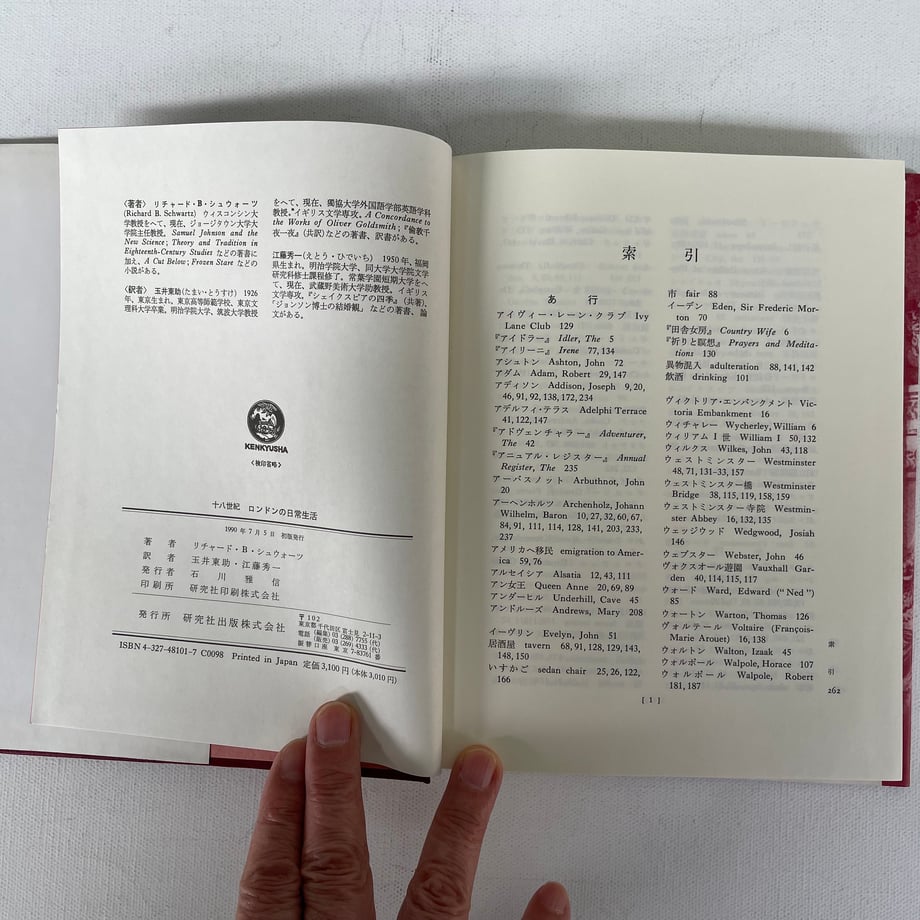 〈著者〉 リチャード・B・シュウォーツ
(Richard B. Schwartz) ウィスコンシン大
学教授をへて、現在、ジョージタウン大学大
学院主任教授。Samuel Johnson and the
New Science; Theory and Tradition in
Eighteenth-Century Studies などの著書に
加え、A Cut Below; Frozen Stare などの
小説がある。
〈訳者〉 玉井東助(たまい・とうすけ) 1926
年、東京生まれ。東京高等師範学校、東京文
理科大学卒業。明治学院大学、筑波大学教授
をへて、現在、獨協大学外国語学部英語学科
教授。イギリス文学専攻。A Concordance to
the Works of Oliver Goldsmith;『倫敦千
夜一夜』(共訳)などの著書、訳書がある。
江藤秀一(えとう・ひでいち) 1950年、福岡
県生まれ。明治学院大学、同大学大学院文学
研究科修士課程修了。常葉学園短期大学をへ
て、現在、武蔵野美術大学助教授。イギリス
文学専攻。『シェイクスピアの四季』(共著)、
「ジョンソン博士の結婚観」などの著書、論
文がある。
KENKYUSHA
〈検印省略〉
十八世紀 ロンドンの日常生活
1990年7月5日 初版発行
著者 リチャード・B・シュウォーツ
訳者 玉井東助・江藤秀一
発行者 石川雅信
印刷所 研究社印刷株式会社
発行所 研究社出版株式会社
〒102
東京都千代田区富士見2-11-3
電話 (編集) 03 (288) 7755 (代)
(販売) 03 (269) 4333 (代)
振替口座 東京7-83761番
ISBN 4-327-48101-7 C0098 Printed in Japan 定価 3,100円 (本体3,010円)
索引
あ行
アイヴィー・レーン・クラブ Ivy
Lane Club 129
『アイドラー』 Idler, The 5
『アイリーニ』 Irene 77, 134
アシュトン Ashton, John 72
アダム Adam, Robert 29, 147
アディソン Addison, Joseph 9, 20,
46, 91, 92, 138, 172, 234
アデルフィ・テラス Adelphi Terrace
41, 122, 147
『アドヴェンチャラー』 Adventurer,
The 42
『アニュアル・レジスター』 Annual
Register, The 235
アーバスノット Arbuthnot, John
20
アーヘンホルツ Archenholz, Johann
Wilhelm, Baron 10, 27, 32, 60, 67,
84, 91, 111, 114, 128, 141, 203, 233,
237
アメリカへ移民 emigration to Amer-
ica 59, 76
アルセイシア Alsatia 12, 43, 111
アン女王 Queen Anne 20, 69, 89
アンダーヒル Underhill, Cave 45
アンドルーズ Andrews, Mary 208
イーヴリン Evelyn, John 51
居酒屋 tavern 68, 91, 128, 129, 143,
148, 150
いすかご sedan chair 25, 26, 122,
166
市 fair 88
イーデン Eden, Sir Frederic Mor-
ton 70
『田舎女房』 Country Wife 6
『祈りと瞑想』 Prayers and Medita-
tions 130
異物混入 adulteration 88, 141, 142
飲酒 drinking 101
ヴィクトリア・エンバンクメント Vic-
toria Embankment 16
ウィチャレー Wycherley, William 6
ウィリアムI世 William I 50, 132
ウィルクス Wilkes, John 43, 118
ウェストミンスター Westminster
48, 71, 131-33, 157
ウェストミンスター橋 Westminster
Bridge 38, 115, 119, 158, 159
ウェストミンスター寺院 Westmin-
ster Abbey 16, 132, 135
ウェッジウッド Wedgwood, Josiah
146
ウェブスター Webster, John 46
ヴォクスオール遊園 Vauxhall Gar-
den 40, 114, 115, 117
ウォード Ward, Edward (“Ned”)
85
ウォートン Warton, Thomas 126
ヴォルテール Voltaire (François-
Marie Arouet) 16, 138
ウォルトン Walton, Izaak 45
ウォルポール Walpole, Horace 107
ウォルポール Walpole, Robert
181, 187
索引
262
[ 1 ]